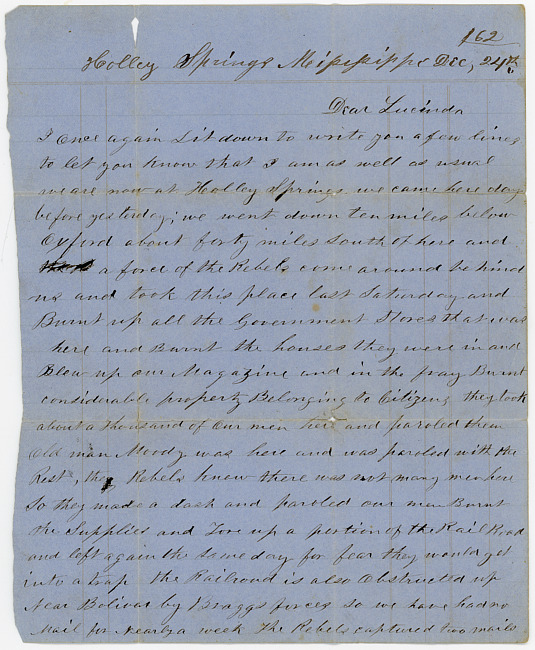 162
Holley Springs Mississippi Dec, 24th
Dear Lucinda
I once again Sit down to write you a few lines
to let you know that I am as well as usual
we are now at Holley Springs we came here day
before yesterday; we went down ten miles below
Oxford about forty miles South of here and
a force of the Rebels come around behind
us and took this place last Saturday and
Burnt up all the Government Stores that was
here and Burnt the houses they were in and
Blew up our Magazine and in the fray Burnt
considerable property Belonging to Citizens they took
about a thousand of our men here and paroled them
Old man Moody was here and was paroled with the
Rest, the Rebels knew there was not many men here
So they made a dash and paroled our men Burnt
the Supplies and Tore up a portion of the Rail Road
and left again the same day for fear they would get
into a trap the Railroad is also Obstructed up
Near Bolivar by Braggs forces so we have had no
Mail for Nearly a week The Rebels captured two mails